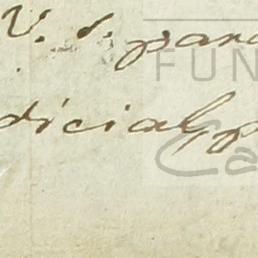 V. S. para
dicial, p
FUN
Ca